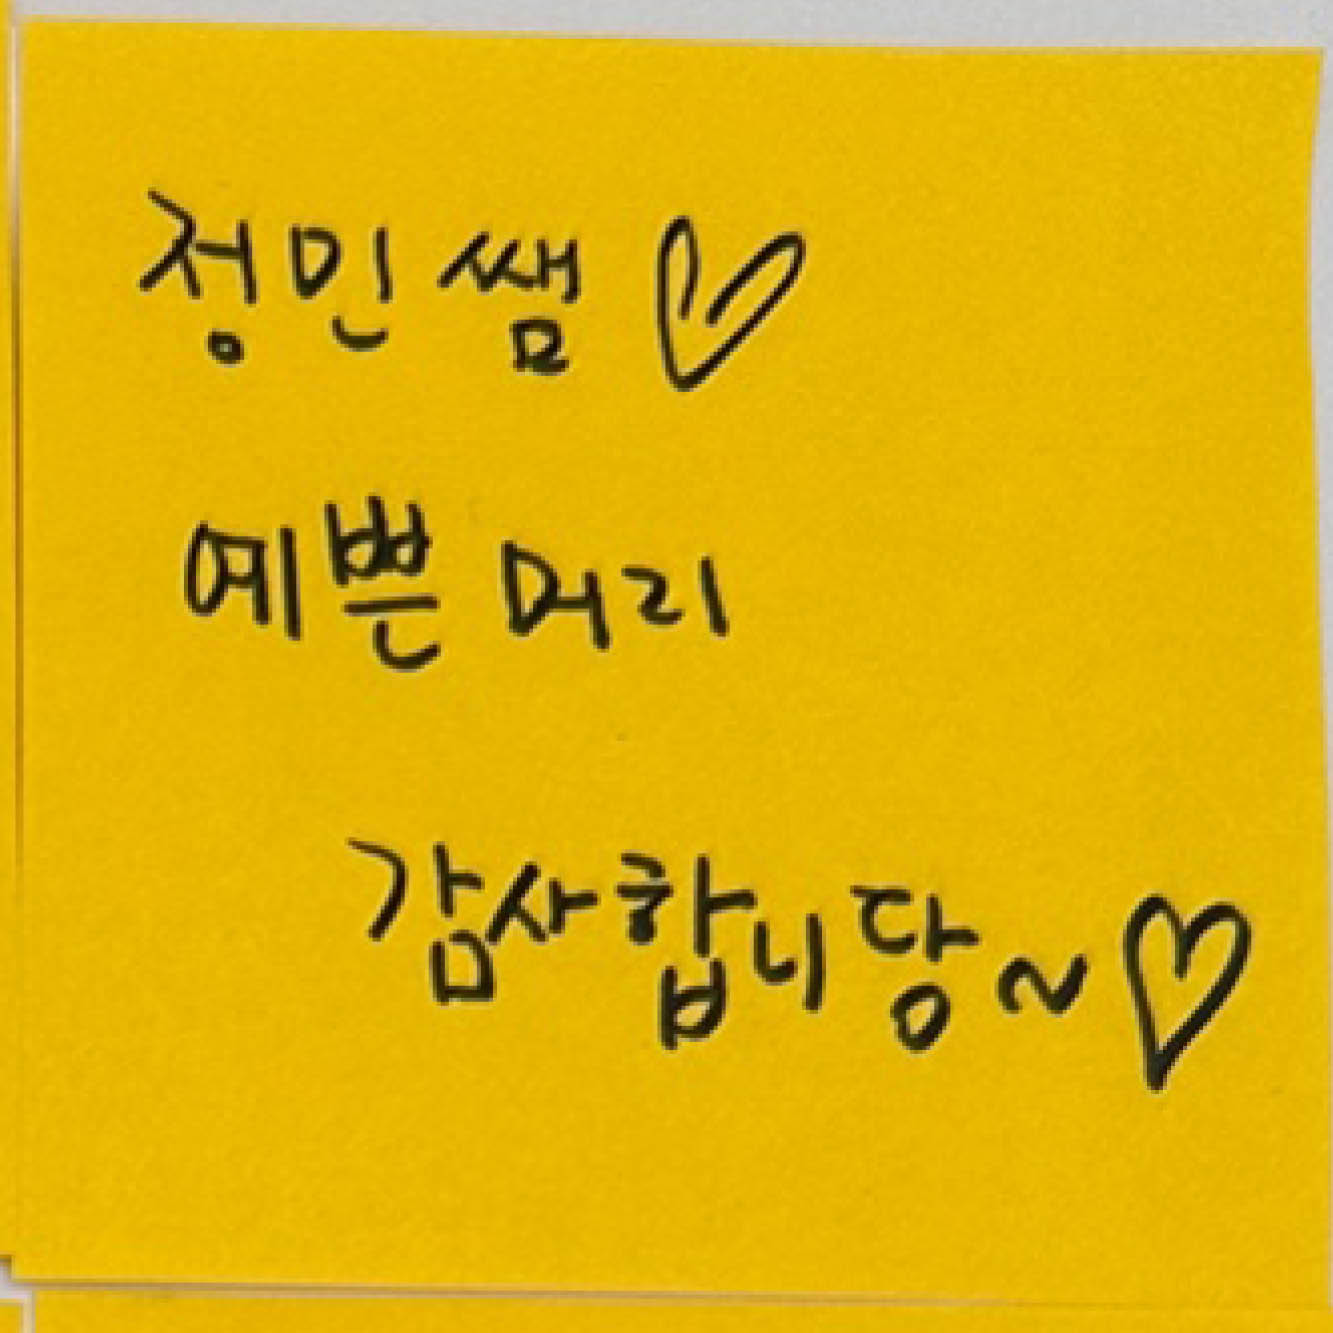 정민쌤♡
예쁜머리
감사합니당~♡